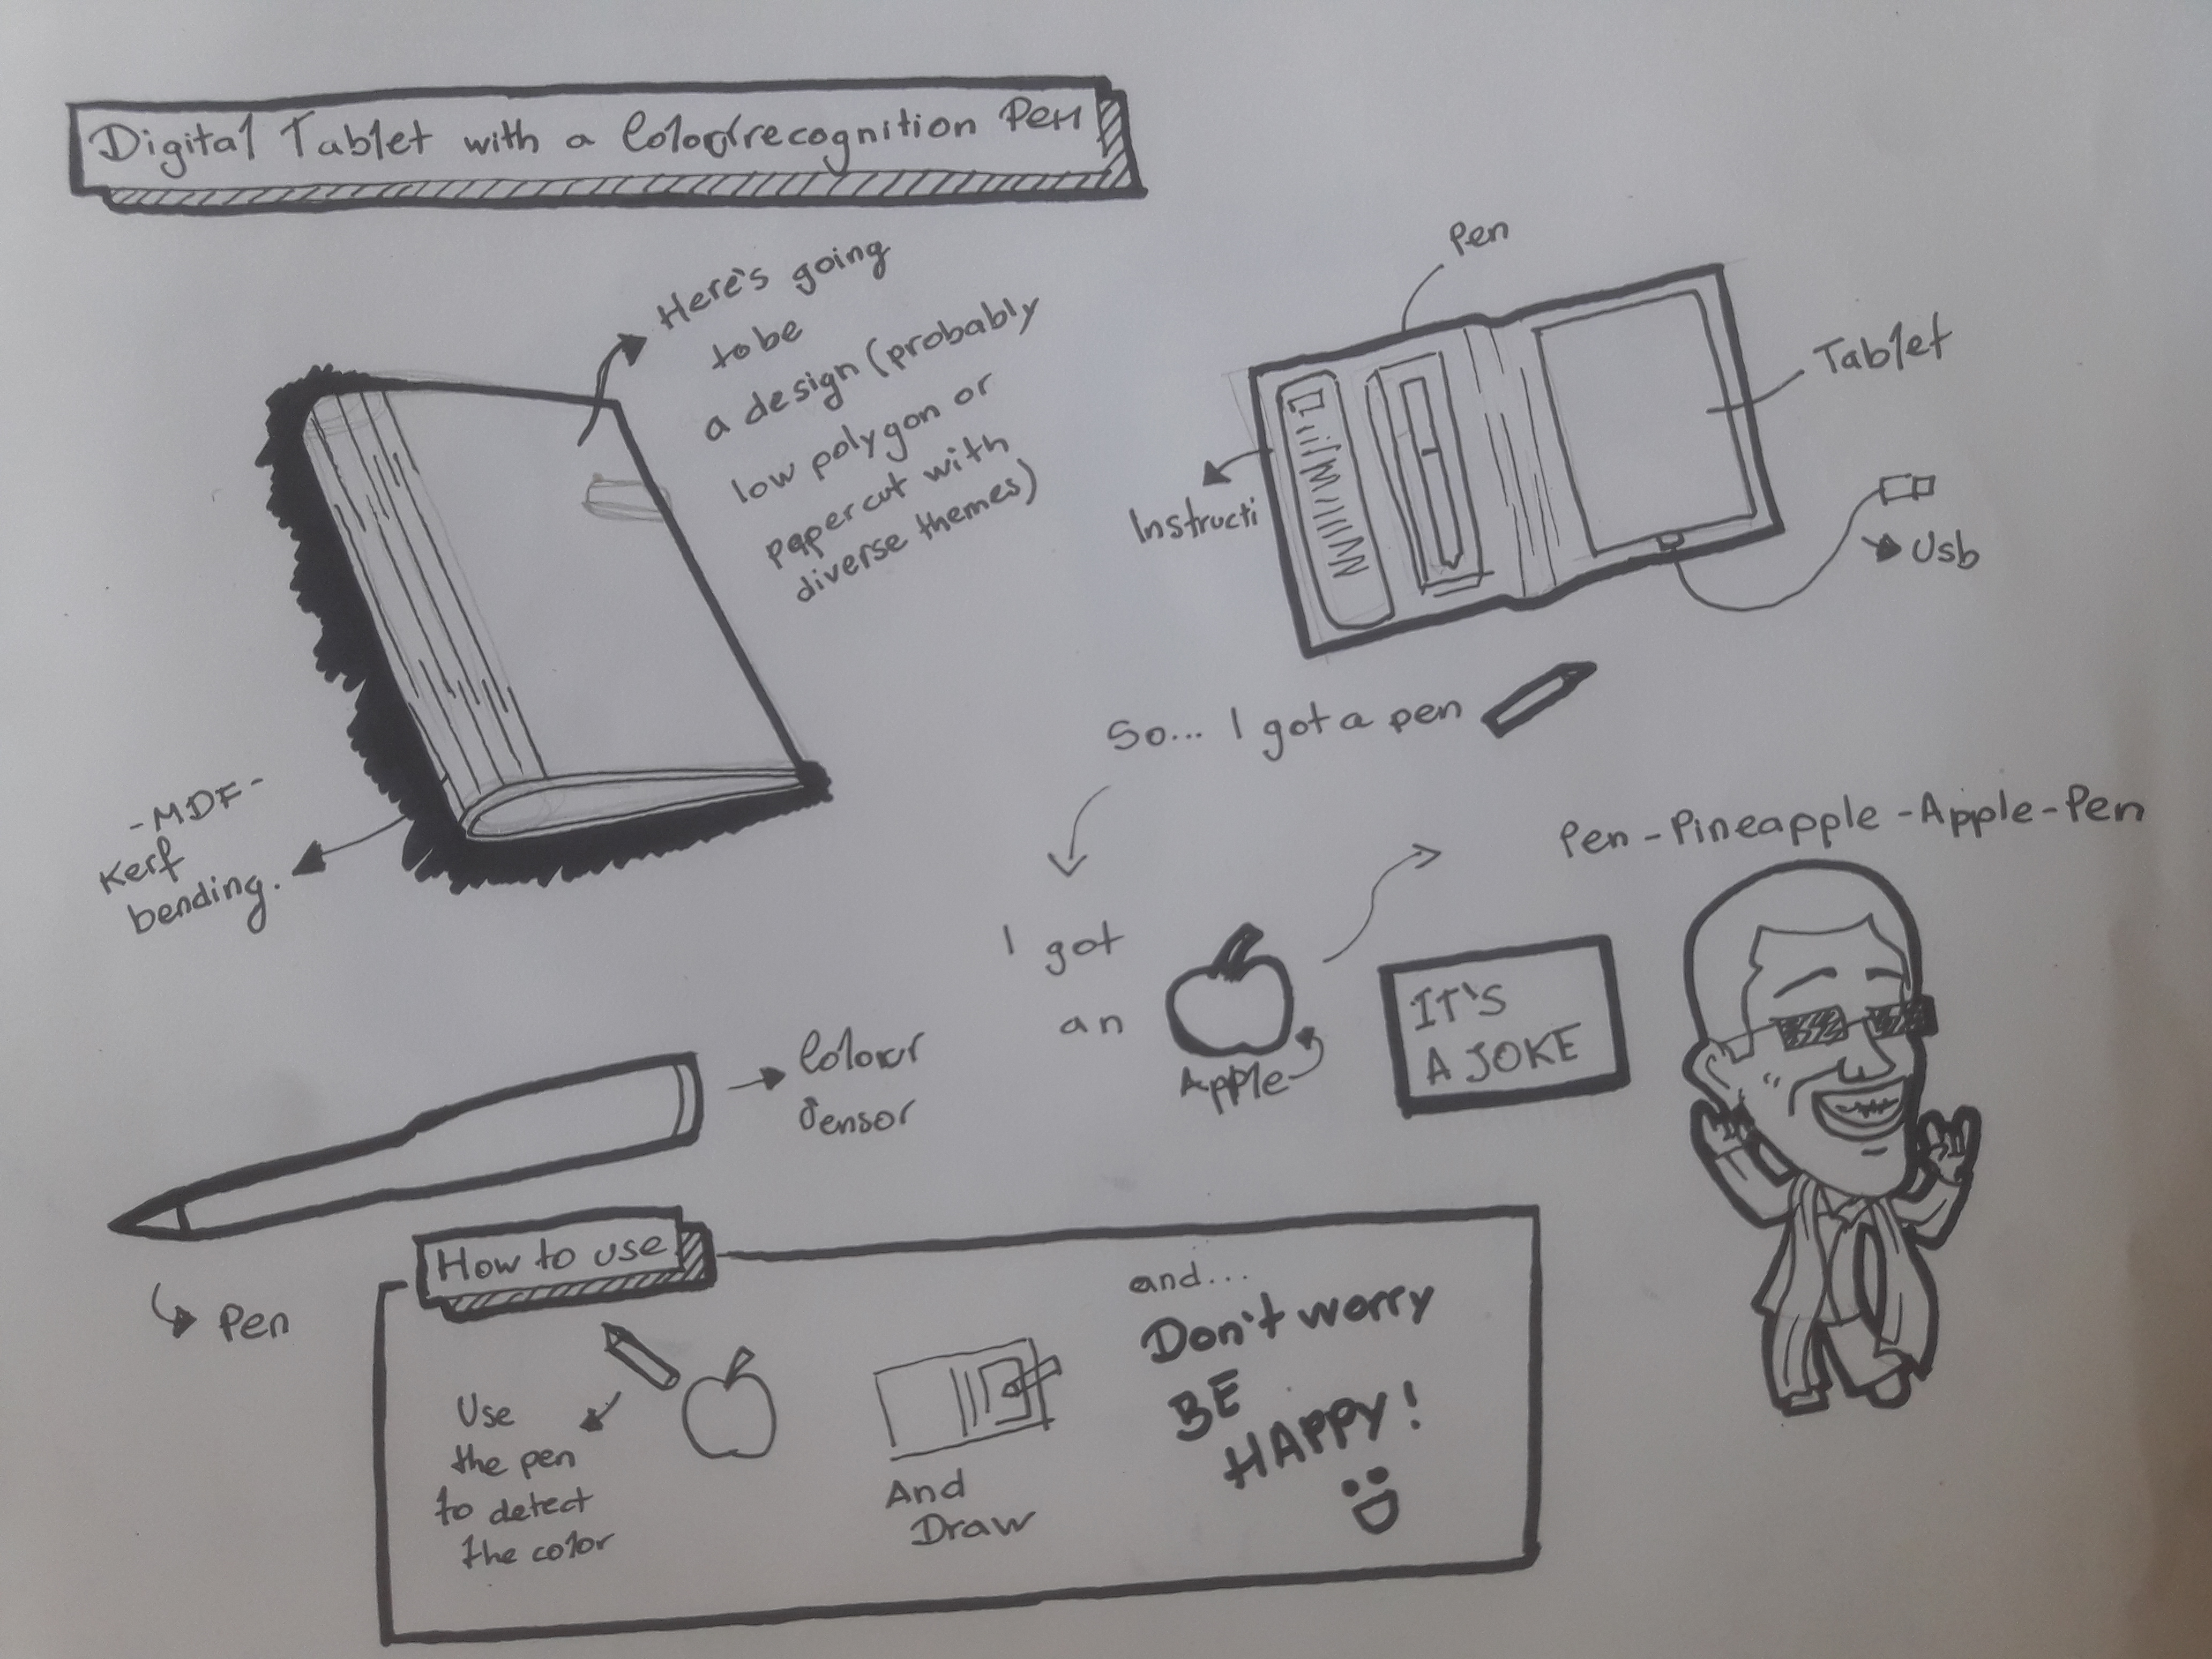 Digital Tablet with a Colourrecognition Pen
Here's going
to be
a design (probably
low polygon or
papercut with
diverse themes)
-MDF-
Kerf
bending.
Pen
Tablet
Instructi
Usb
So... I got a pen
I got
an
Apple
Pen-Pineapple-Apple-Pen
IT'S
A JOKE
Colour
Sensor
Pen
How to use
Use
the pen
to detect
the color
And
Draw
and...
Don't worry
BE
HAPPY!